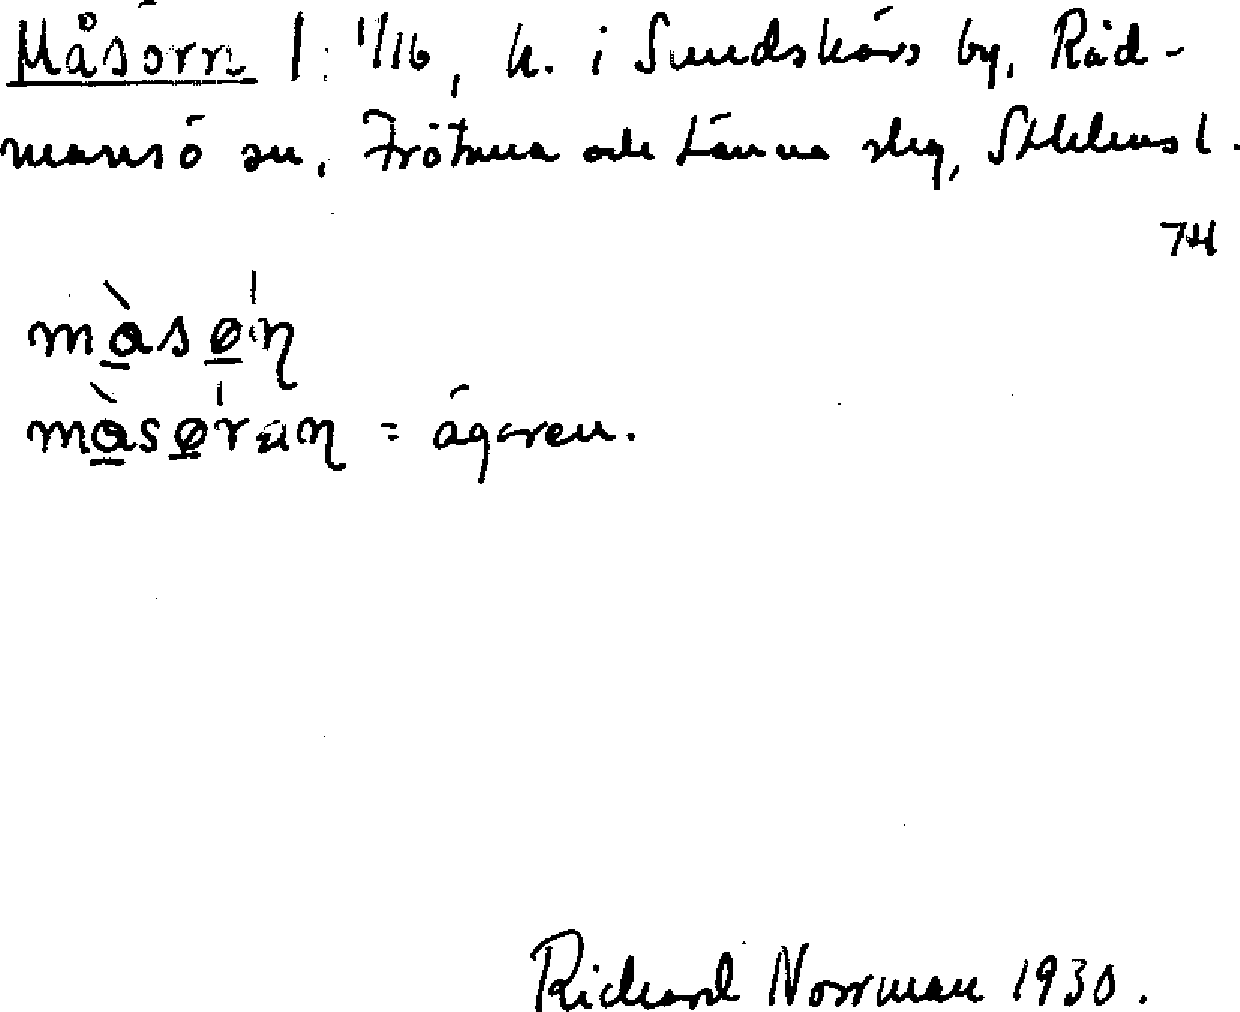 Måsörn 1: 1/16, h. i Sundskärs by, Råd-
mansö sn, Frötuna och Länna slg, Sthlms l.
74
mà̱sø̱ꞌn
mà̱sø̱ran = ägaren.
Richard Norrman 1930.